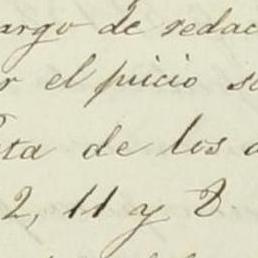 argo de redac
r el juicio s
ta de los
2, 11 y 8.